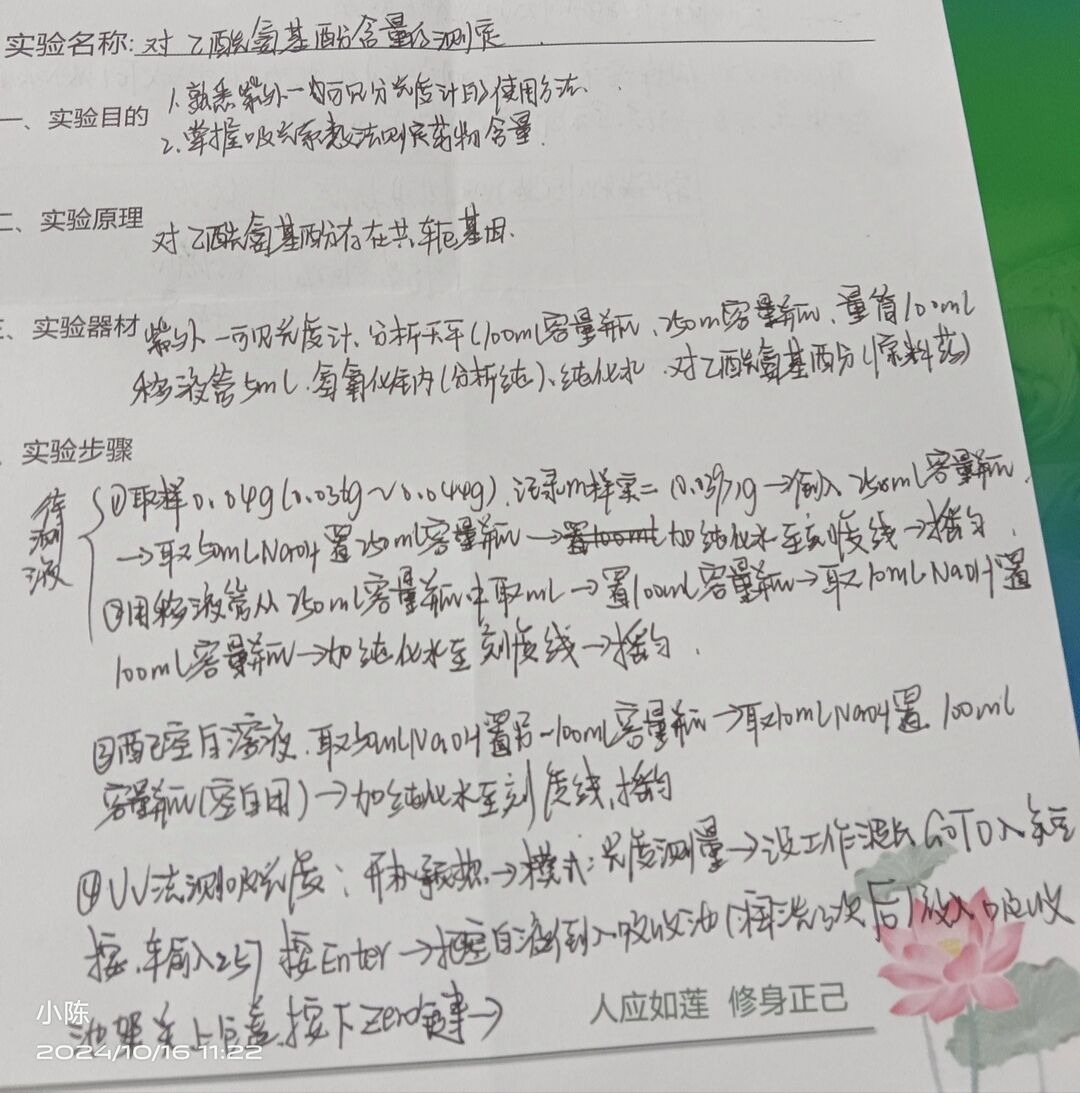 实验名称: 对乙酰氨基酚含量的测定
一、实验目的 1.熟悉紫外-可见分光光度计的使用方法.
2.掌握吸光系数法测定药物含量.
二、实验原理 对乙酰氨基酚存在共轭基团.
实验器材 紫外-可见光度计、分析天平(100ml容量瓶、250ml容量瓶、量筒100ml
移液管5ml.氢氧化钠(分析纯)、纯化水.对乙酰氨基酚(原料药)
实验步骤
待测液
①取样0.04g(0.036g~0.044g).记录m样实= →倒入250ml容量瓶.
→取50mLNaOH置250ml容量瓶→置100ml加纯化水至刻度线→摇匀.
②用移液管从250ml容量瓶中取ml→置100ml容量瓶→取10mLNaOH置
100ml容量瓶→加纯化水至刻度线→摇匀.
③配空白溶液.取50mLNaOH置另一100ml容量瓶→取10mLNaOH置100ml
容量瓶(空白用)→加纯化水至刻度线,摇匀
④UV法测吸光度:开机预热→模式:光度测量→设工作波长GOTO
按.车输入257按Enter→把空白液倒入吸收池(润洗3次后)放入吸收
池架关上上盖.按下Zero键→
人应如莲 修身正己
小陈
2024/10/16 11:22